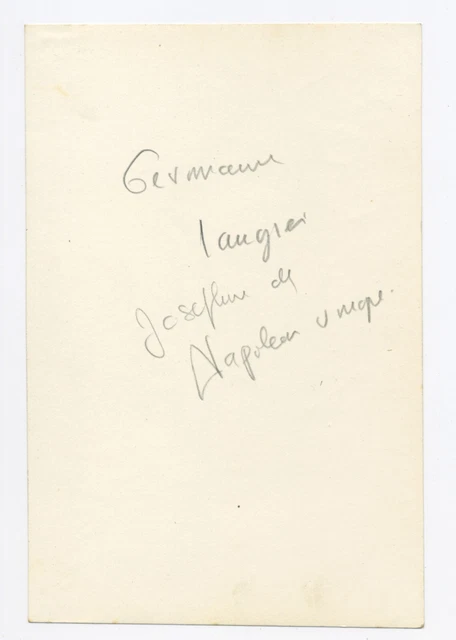 Germaine
Laugier
Josephine de
Napoleon unique.